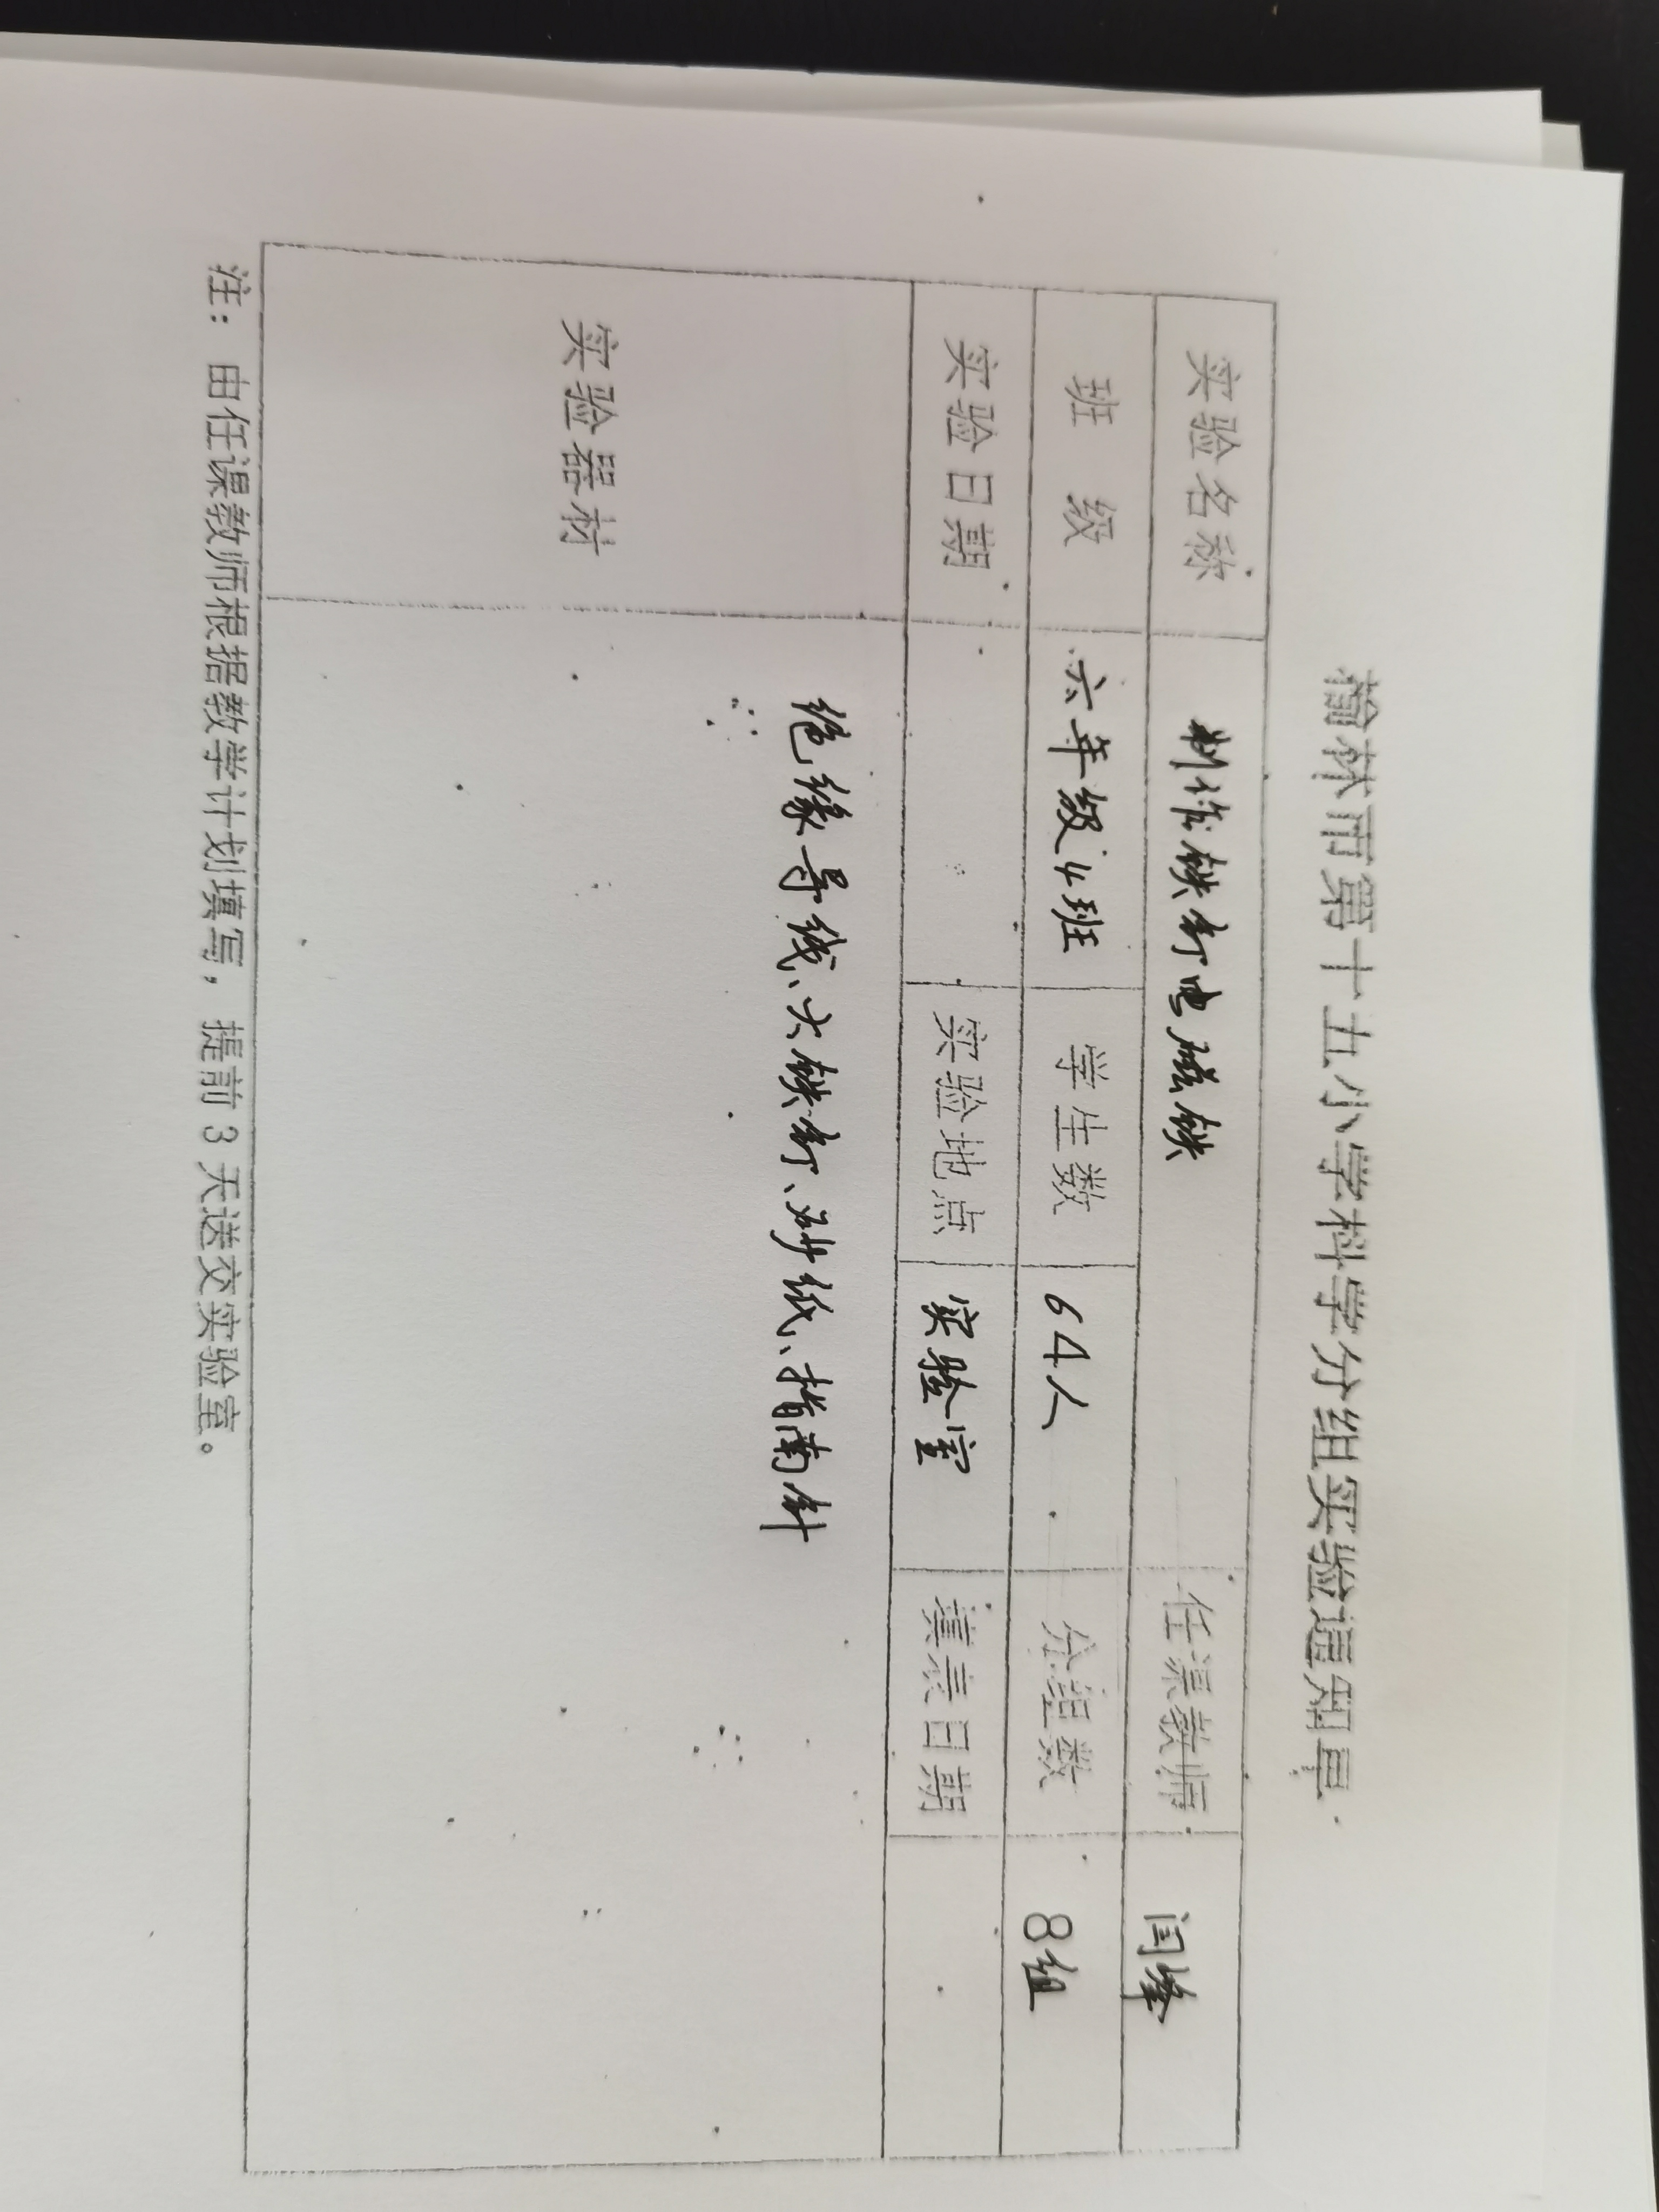 榆林市第十五小学科学分组实验通知单
实验名称 制作铁钉电磁铁 任课教师 闫峰
班 级 六年级4班 学生数 64人 分组数 8组
实验日期 实验地点 实验室 填表日期
实验器材 绝缘导线、大铁钉、砂纸、指南针
注：由任课教师根据教学计划填写，提前3天送交实验室。